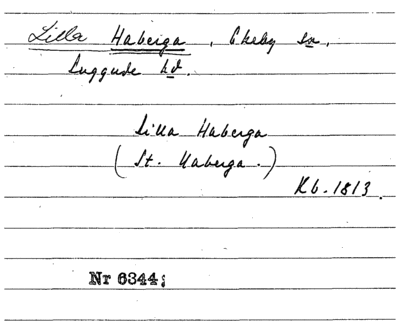 Lilla Haberga, Ekeby sn,
Luggude hd.
Lilla Haberga
(St. Haberga.)
Kb. 1813.
Nr 6344;